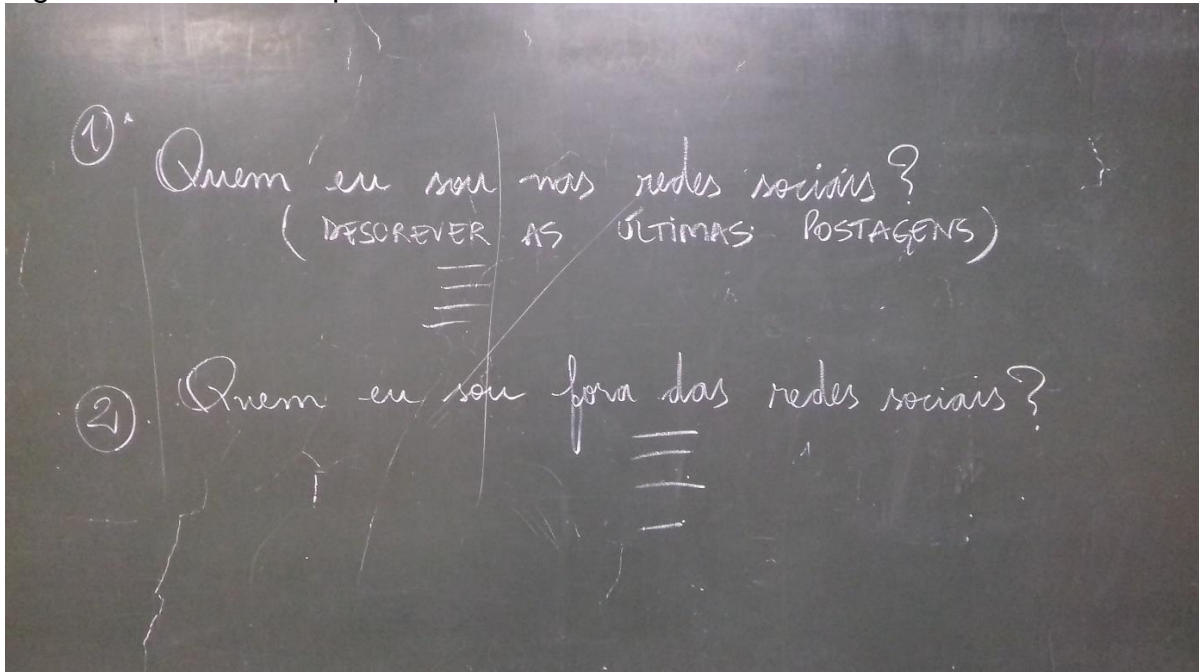 ① Quem eu sou nas redes sociais?
(DESCREVER AS ÚLTIMAS POSTAGENS)
② Quem eu sou fora das redes sociais?